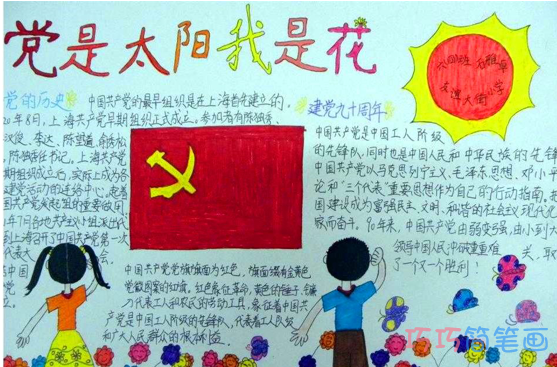 党是太阳我是花
党的历史
中国共产党的最早组织是在上海首先建立的。
20年8月,上海共产党早期组织正式成立。参加者有陈独秀、
汉俊、李达、陈望道、俞秀松
陈独秀任书记。上海共产
期组织成立后,实际上成为各
建党活动的联络中心,起着
国共产党发起组的重要作用
到上海召开了中国共产党第一次
代表大会。
中国共产党党旗旗面为红色,旗面缀有金黄色
党徽图案的红旗。红色象征革命,黄色的锤子、镰
刀代表工人和农民的劳动工具,象征着中国共
产党是中国工人阶级的先锋队,代表着工人阶级
和广大人民群众的根本利益。
建党九十周年
中国共产党是中国工人阶级
的先锋队,同时也是中国人民和中华民族的先锋
中国共产党以马克思列宁主义、毛泽东思想、邓小平
论和“三个代表”重要思想作为自己的行动指南。把
国建设成为富强民主、文明、和谐的社会主义现代
家而奋斗。90年来,中国共产党由弱变强,由小到大
领导中国人民冲破重重难关,取
了一个又一个胜利!
友谊大街小学
巧巧简笔画